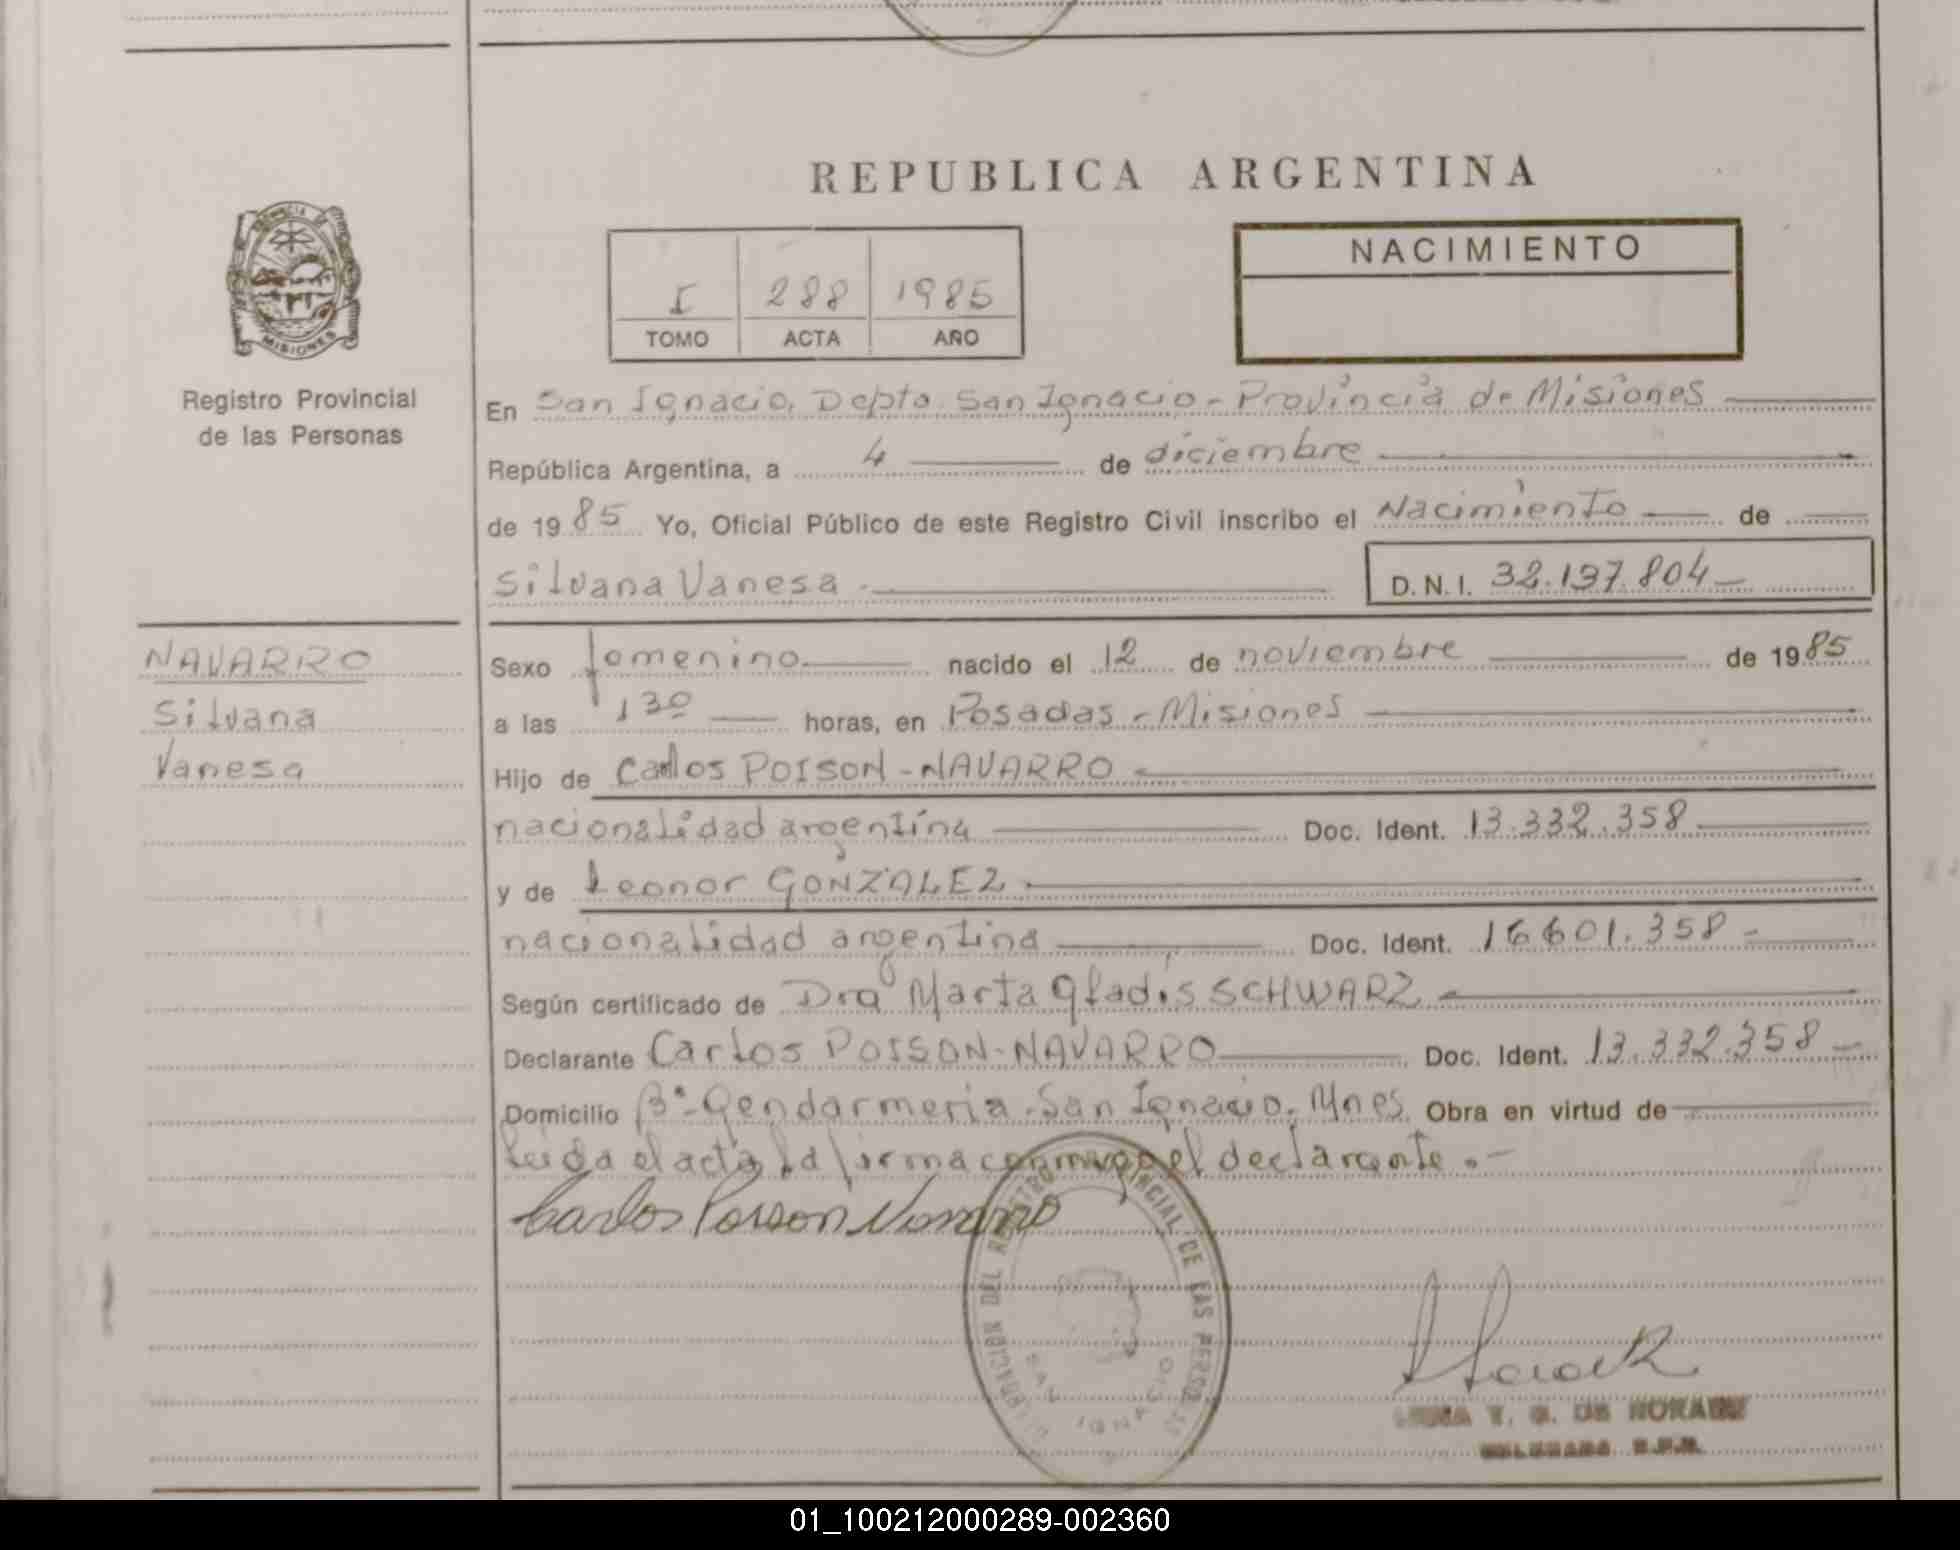 REPUBLICA ARGENTINA
PROVINCIA DE
MISIONES
Registro Provincial
de las Personas
I 288 1985
TOMO ACTA AÑO
NACIMIENTO
En San Ignacio, Depto San Ignacio - Provincia de Misiones
República Argentina, a 4 de diciembre
de 1985 Yo, Oficial Público de este Registro Civil inscribo el Nacimiento de
Silvana Vanesa D.N.I. 32.137.804
NAVARRO
Silvana
Vanesa
Sexo femenino nacido el 12 de noviembre de 1985
a las 13º horas, en Posadas - Misiones
Hijo de Carlos POISON - NAVARRO
nacionalidad argentina Doc. Ident. 13.332.358
y de Leonor GONZALEZ
nacionalidad argentina Doc. Ident. 16.601.358
Según certificado de Dra Marta Gladis SCHWARZ
Declarante Carlos POISSON-NAVARRO Doc. Ident. 13.332.358
Domicilio Bº-Gendarmeria-San Ignacio. Mnes Obra en virtud de
leida el acta la firma conmigo el declarante.-
Carlos Poisson Navarro
DEL REGISTRO PROVINCIAL DE LAS PERSONAS
SAN IGNACIO
01_100212000289-002360